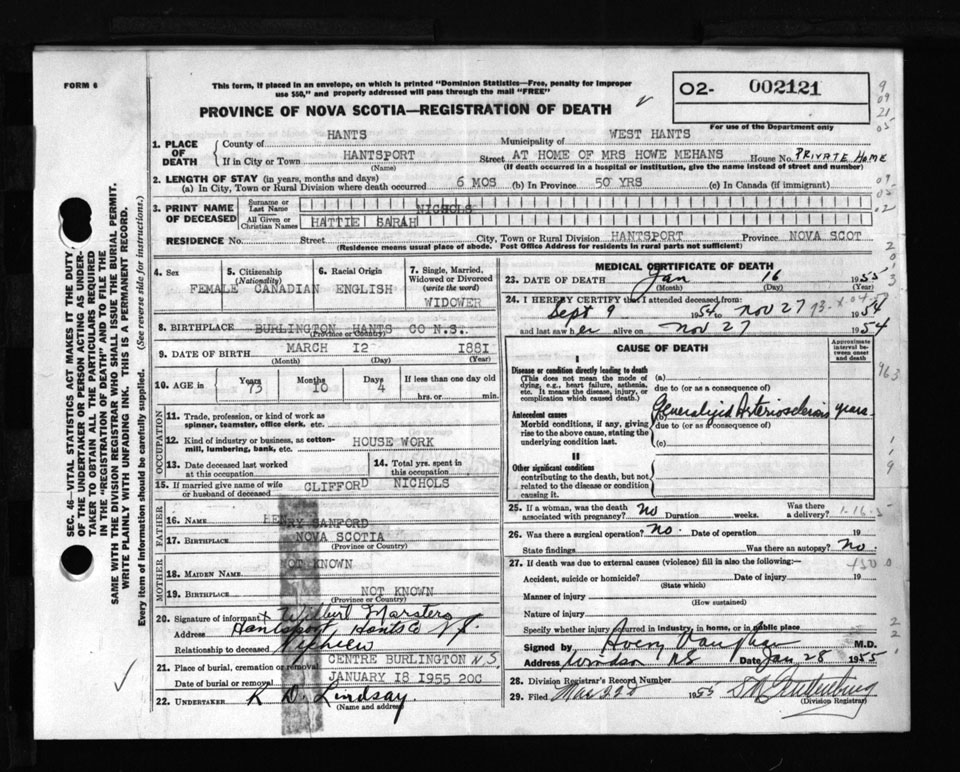 FORM 6
This form, if placed in an envelope, on which is printed "Dominion Statistics—Free, penalty for improper
use $50," and properly addressed will pass through the mail "FREE"
PROVINCE OF NOVA SCOTIA—REGISTRATION OF DEATH
O2- 002121
For use of the Department only
1. PLACE OF DEATH
County of HANTS Municipality of WEST HANTS
If in City or Town HANTSPORT Street AT HOME OF MRS HOWE MEHANS House No. PRIVATE HOME
(Name) (If death occurred in a hospital or institution, give the name instead of street and number)
2. LENGTH OF STAY (in years, months and days)
(a) In City, Town or Rural Division where death occurred 6 MOS (b) In Province 50 YRS (c) In Canada (if immigrant)
3. PRINT NAME OF DECEASED
Surname or Last Name NICHOLS
All Given or Christian Names HATTIE SARAH
RESIDENCE No. Street City, Town or Rural Division HANTSPORT Province NOVA SCOT
(Residence means usual place of abode. Post Office Address for residents in rural parts not sufficient)
4. Sex FEMALE
5. Citizenship (Nationality) CANADIAN
6. Racial Origin ENGLISH
7. Single, Married, Widowed or Divorced (write the word) WIDOWER
8. BIRTHPLACE BURLINGTON HANTS CO N.S.
(Province or Country)
9. DATE OF BIRTH MARCH 12 1881
(Month) (Day) (Year)
10. AGE in Years 73 Months 10 Days 4 If less than one day old
hrs. or min.
OCCUPATION
11. Trade, profession, or kind of work as spinner, teamster, office clerk, etc.
12. Kind of industry or business, as cotton-mill, lumbering, bank, etc. HOUSE WORK
13. Date deceased last worked at this occupation
14. Total yrs. spent in this occupation
15. If married give name of wife or husband of deceased CLIFFORD NICHOLS
FATHER
16. NAME HENRY SANFORD
17. BIRTHPLACE NOVA SCOTIA
(Province or Country)
MOTHER
18. MAIDEN NAME NOT KNOWN
19. BIRTHPLACE NOT KNOWN
(Province or Country)
20. Signature of informant x Wilbert Marsters
Address Hantsport Hants Co N.S.
Relationship to deceased Nephew
21. Place of burial, cremation or removal CENTRE BURLINGTON N S
Date of burial or removal JANUARY 18 1955 20C
22. UNDERTAKER R D Lindsay
(Name and address)
MEDICAL CERTIFICATE OF DEATH
23. DATE OF DEATH Jan 16 1955
(Month) (Day) (Year)
24. I HEREBY CERTIFY that I attended deceased from:
Sept 9 1954 to Nov 27 1954
and last saw her alive on Nov 27 1954
CAUSE OF DEATH
Approximate interval between onset and death
I
Disease or condition directly leading to death
(This does not mean the mode of dying, e.g., heart failure, asthenia, etc. It means the disease, injury, or complication which caused death.)
(a)
due to (or as a consequence of)
Antecedent causes
Morbid conditions, if any, giving rise to the above cause, stating the underlying condition last.
(b) Generalized Arteriosclerosis years
due to (or as a consequence of)
(c)
II
Other significant conditions
contributing to the death, but not related to the disease or condition causing it.
25. If a woman, was the death associated with pregnancy? No Duration weeks. Was there a delivery?
26. Was there a surgical operation? No. Date of operation 19
State findings Was there an autopsy? No.
27. If death was due to external causes (violence) fill in also the following:—
Accident, suicide or homicide? Date of injury 19
(State which)
Manner of injury
(How sustained)
Nature of injury
Specify whether injury occurred in industry, in home, or in public place
Signed by Avery Vaughan M.D.
Address Windsor NS Date Jan 28 1955
28. Division Registrar's Record Number
29. Filed 1955
(Division Registrar)
SEC. 46—VITAL STATISTICS ACT MAKES IT THE DUTY
OF THE UNDERTAKER OR PERSON ACTING AS UNDER-
TAKER TO OBTAIN ALL THE PARTICULARS REQUIRED
IN THE "REGISTRATION OF DEATH" AND TO FILE THE
SAME WITH THE DIVISION REGISTRAR WHO SHALL ISSUE THE BURIAL PERMIT.
WRITE PLAINLY WITH UNFADING INK. THIS IS A PERMANENT RECORD.
Every item of information should be carefully supplied. (See reverse side for instructions.)